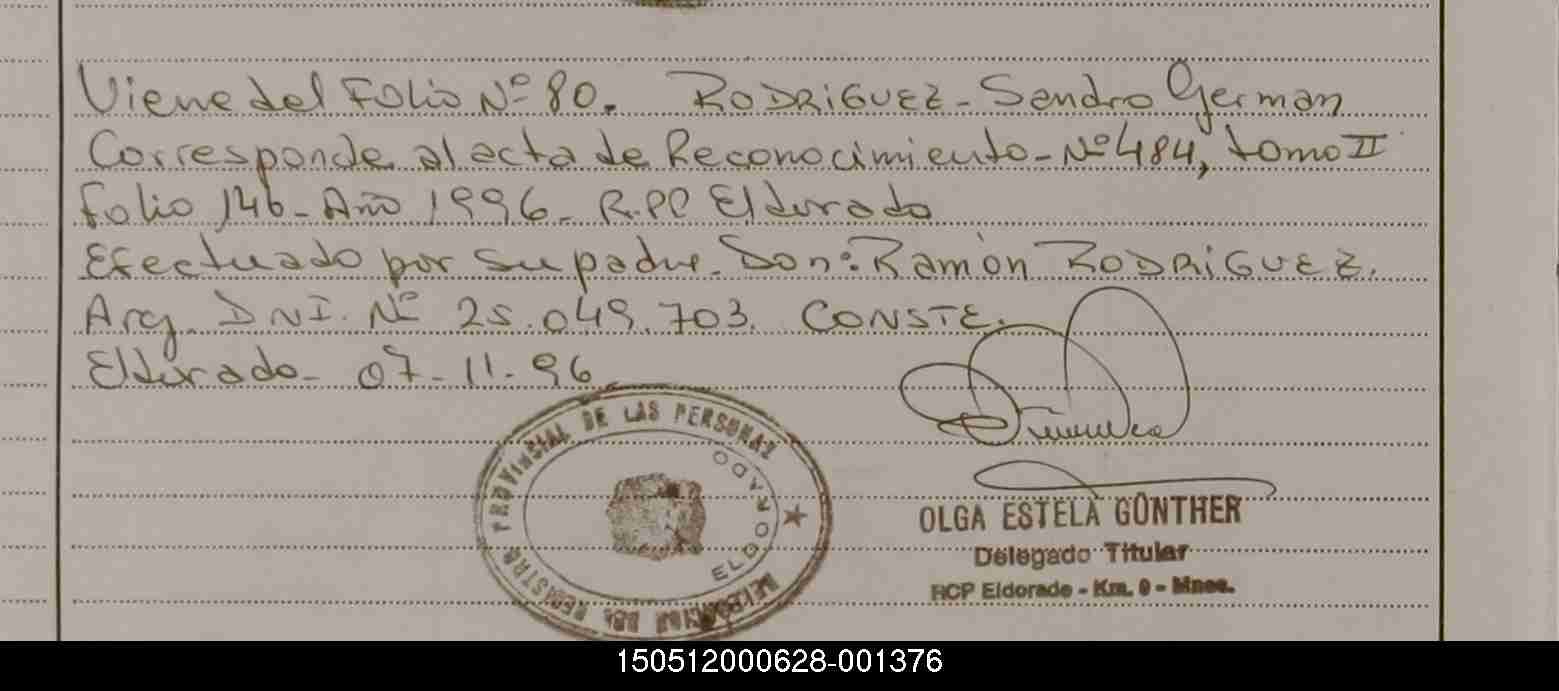 Viene del Folio Nº 80. RODRIGUEZ - Sandro German
Corresponde al acta de Reconocimiento - Nº 484, tomo II
folio 146 - Año 1996 - R.PP Eldorado
Efectuado por su padre. Don: Ramón RODRIGUEZ.
Arg. DNI. Nº 25.049.703. CONSTE.
Eldorado - 07 - 11 - 96
DELEGACION DEL REGISTRO PROVINCIAL DE LAS PERSONAS
ELDORADO
OLGA ESTELA GÜNTHER
Delegado Titular
RCP Eldorado - Km. 9 - Mnes.
150512000628-001376